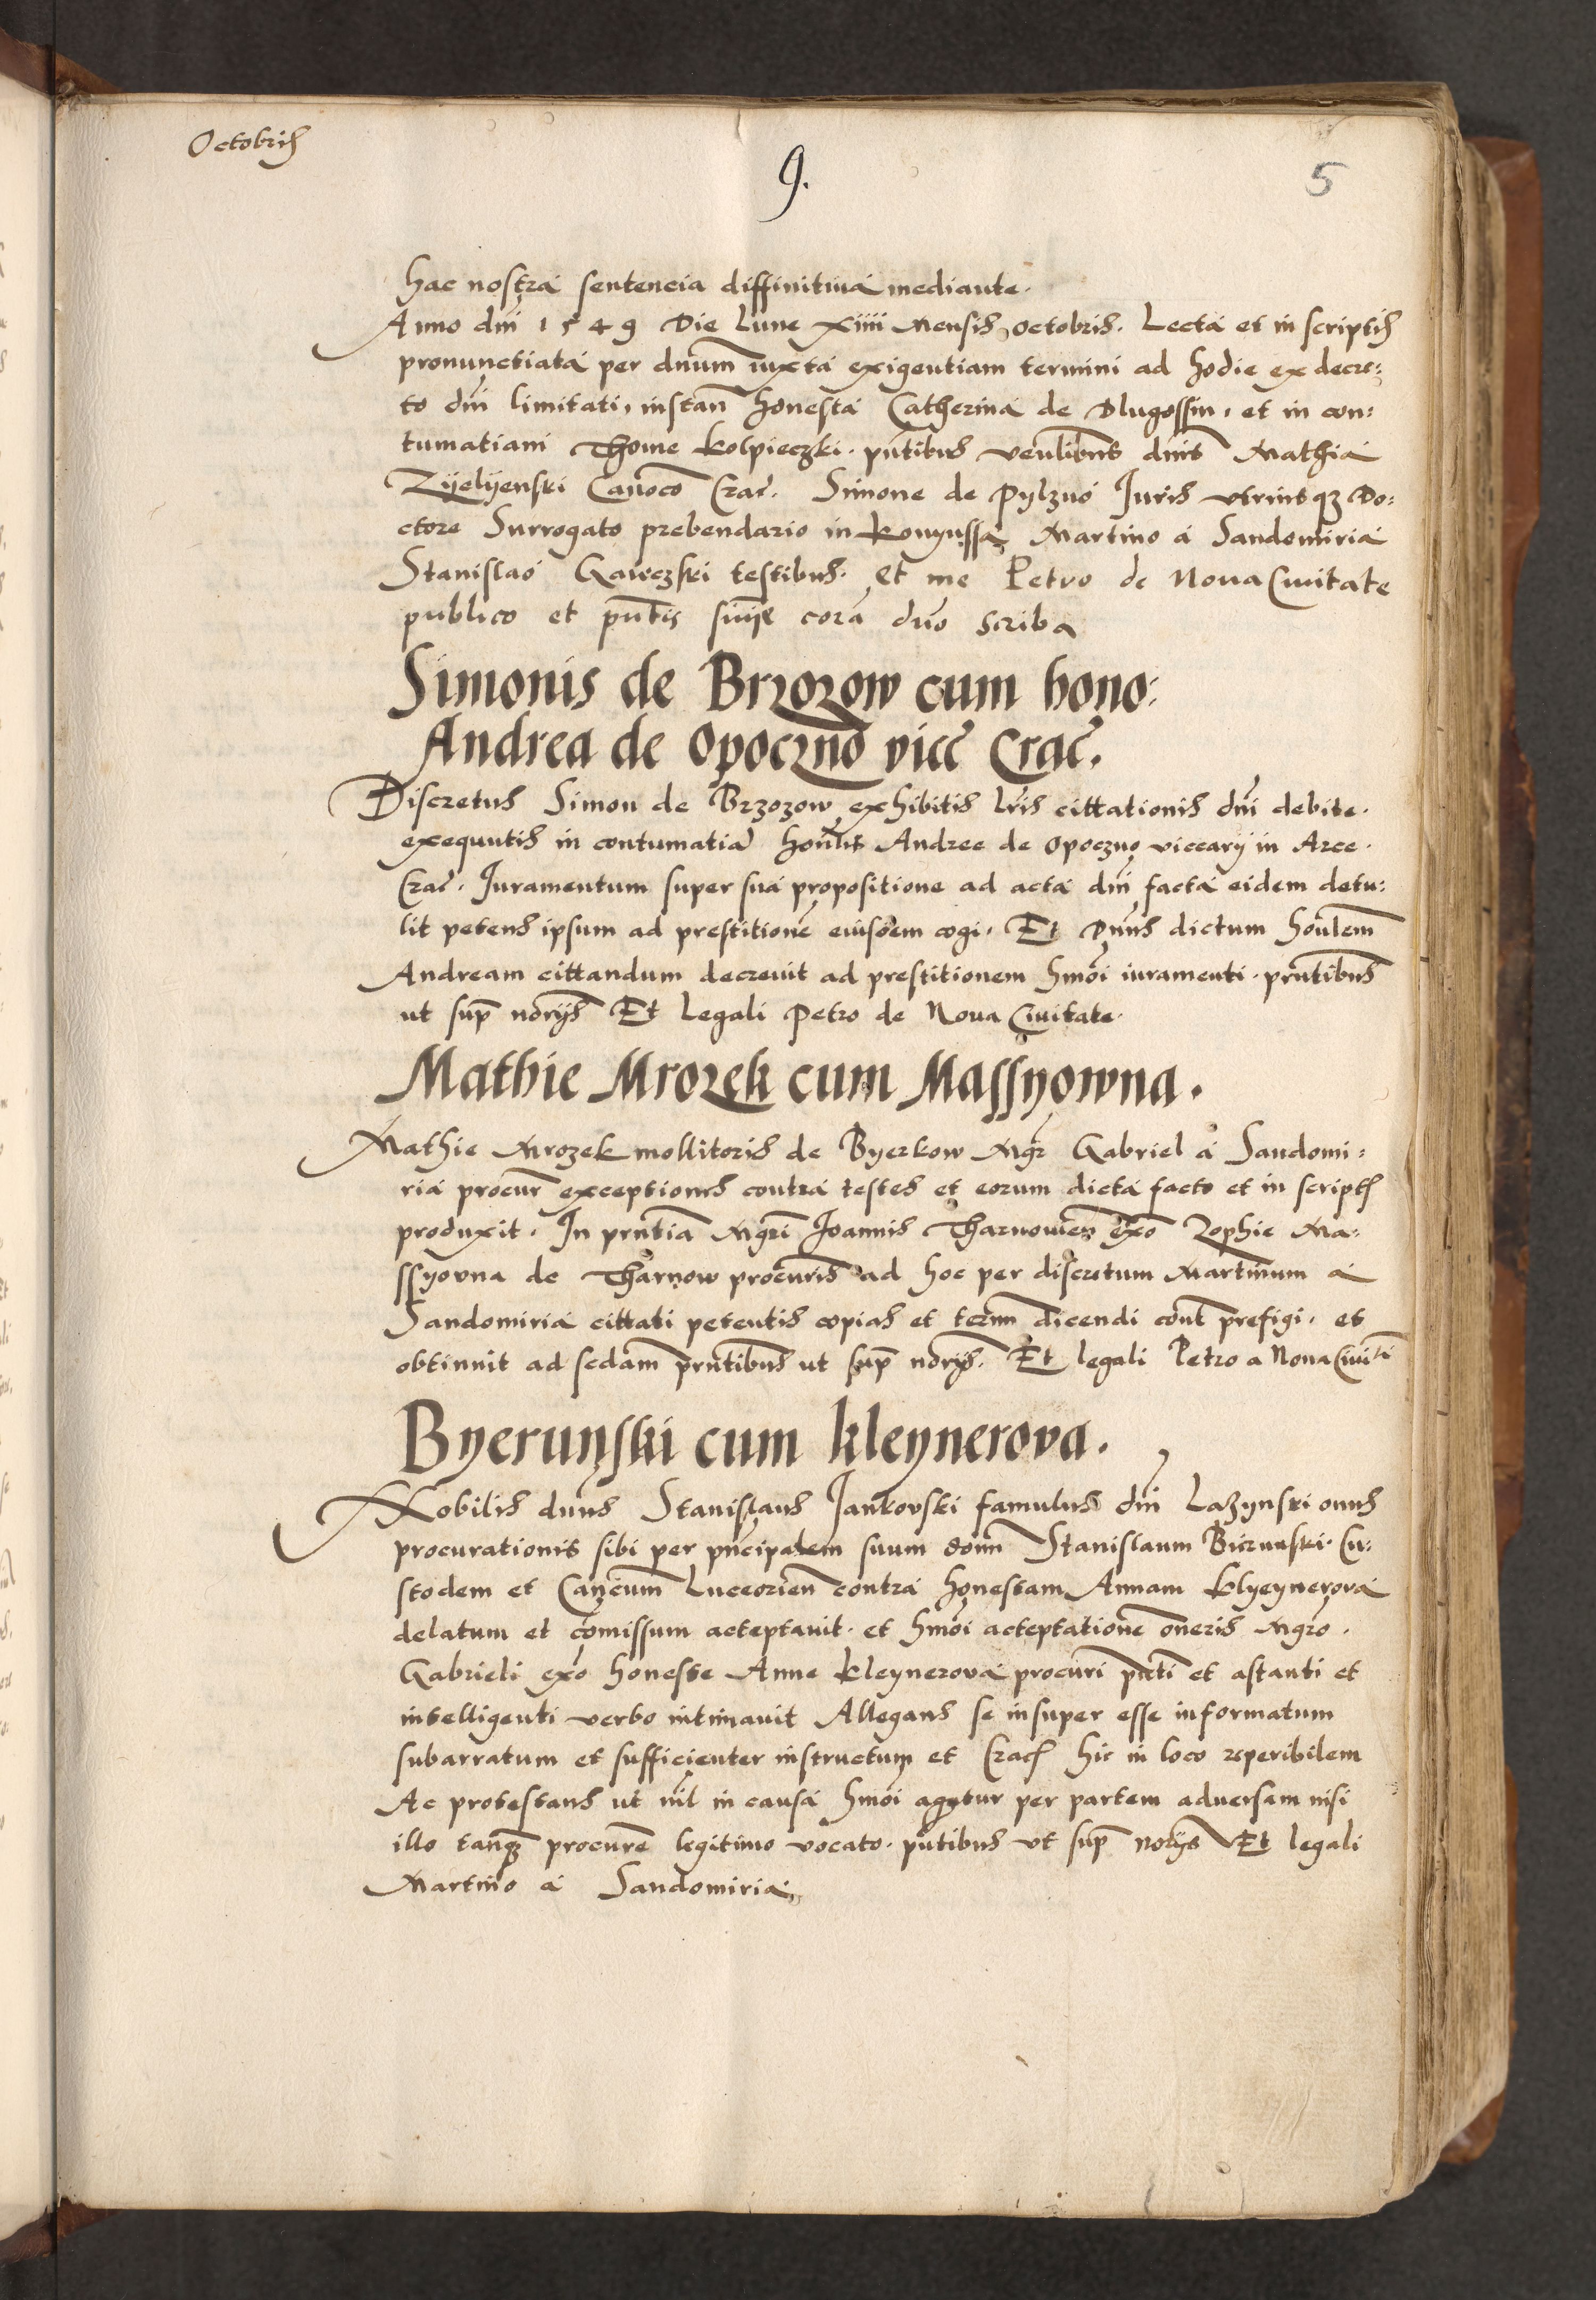 Octobris
9.
5
hac nostra sentencia diffinitiua mediante.
Anno dni 1549 Die lune xiiii Mensis octobris. Lecta et in scriptis
pronunctiata per dnum iuxta exigentiam termini ad hodie ex decre:
to dni limitati, instan honesta Catherina de Dlugossin, et in con:
tumatiam Thome Kolpieczki. pntibus venlibus dnis Mathia
Zyelyenski Canoco Crac. Simone de Pylzno Iuris utriusq Do:
ctore Surrogato prebendario in Konyussa Martino a Sandomiria
Stanislao Gawczki testibus. et me Petro de Noua Ciuitate
publico et pntis coram dno scriba
Simonis de Brzozow cum hono:
Andrea de Opoczno vicc Crac.
Discretus Simon de Brzozow exhibitis lris cittationis dni debite.
exequutis in contumatia honlis Andree de Opoczno viccarij in Arce.
Crac. Iuramentum super sua propositione ad acta dni facta eidem detu:
lit petens ipsum ad prestitione eiusdem cogi. Et Dnus dictum honlem
Andream cittandum decreuit ad prestitionem hmoi iuramenti. prntibus
ut sup norijs Et legali Petro de Noua Ciuitate.
Mathie Mrozek cum Massyowna.
Mathie Mrozek mollitoris de Byerkow Mgr Gabriel a Sandomi:
ria procur exceptiones contra testes et eorum dicta facto et in script
produxit. In prntia Mgri Ioannis Tharnouien exo Zophie Ma:
ssyovna de Tharnow procuris ad hoc per discretum Martinum a
Sandomiria cittati petentis copias et termn dicendi cont prefigi. et
obtinuit ad sedam prntibus ut sup norijs. Et legali Petro a Noua Ciuiti
Byerunski cum kleynerova.
Nobilis dnus Stanislaus Jankovski famulus dni Lazynski onus
procurationis sibi per pncipalem suum donn Stanislaum Bierunski. Cu:
stodem et Cancum Luceorien contra honestam Annam Klyeynerova
delatum et comissum acteptauit. et hmoi acteptatione oneris Mgro.
Gabrieli exo honeste Anne kleynerova procuri pnti et astanti et
intelligenti verbo intimauit Allegans se insuper esse informatum
subarratum et sufficienter instructum et Crac hic in loco reperibilem
Ac protestans ut nil in causa hmoi agatur per partem aduersam nisi
illo tanq procure legitimo vocato. pntibus ut sup norijs Et legali
Martino a Sandomiria